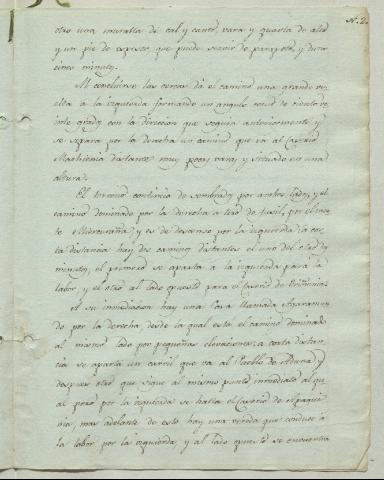 N. 2.
otro una muralla de cal y canto, vara y quarta de alto
y un pie de espesor, que puede servir de parapeto, y dura
cinco minutos.
Al concluirse las cercas dá el camino una grande vu
elta à la izquierda formando un angulo de ciento ve
inte grados con la direccion que seguia anteriormente, y
se separa por la derecha un camino que va al Caserio
distante muy pocas varas, y situado en una
altura.
El terreno continúa de sembrado por ambos lados, y el
camino dominado por la derecha a tiro de fusil, por el mon
te y es de descenso por la izquierda: a cor
ta distancia hay dos caminos distantes el uno del otro dos
minutos, el primero se aparta a la izquierda para la
labor, y el otro al lado opuesto para el Caserio de
A su inmediacion hay una Casa llamada
do por la derecha, desde la qual está el camino dominado
al mismo lado por pequeñas elevaciones; a corta distan
cia se aparta un carril que va al Pueblo de Aduna, y
despues otro que sigue al mismo punto inmediato al qu
al pero por la izquierda se halla el Caserio de
mas adelante de esto hay una vereda que conduce à
la labor por la izquierda, y al lado opuesto se encuentra